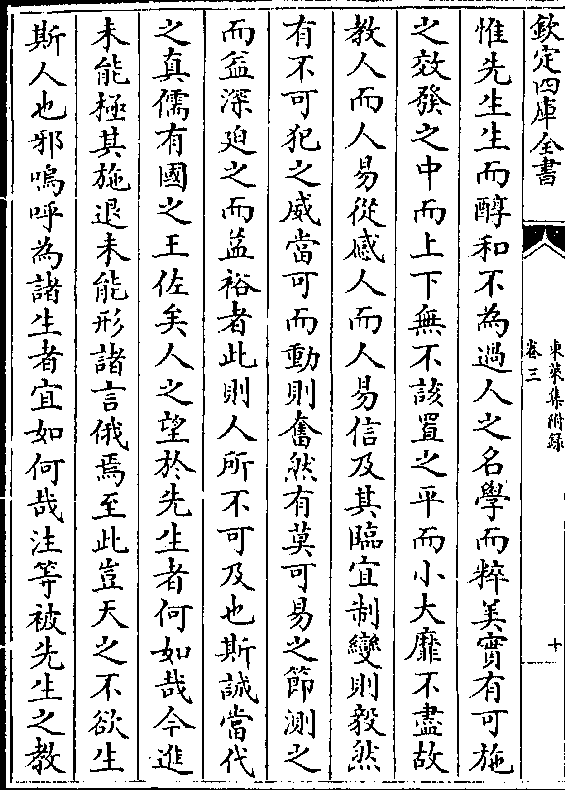 欽定四庫全書
東萊集附録
卷三
十
惟先生生而醇和不為過人之名學而粹美實有可施
之效發之中而上下無不該置之平而小大靡不盡故
教人而人易從感人而人易信及其臨宜制變則毅然
有不可犯之威當可而動則奮然有莫可易之節測之
而益深迫之而益裕者此則人所不可及也斯誠當代
之真儒有國之王佐矣人之望於先生者何如哉今進
未能極其施退未能形諸言俄焉至此豈天之不欲生
斯人也邪嗚呼為諸生者宜如何哉注等被先生之教